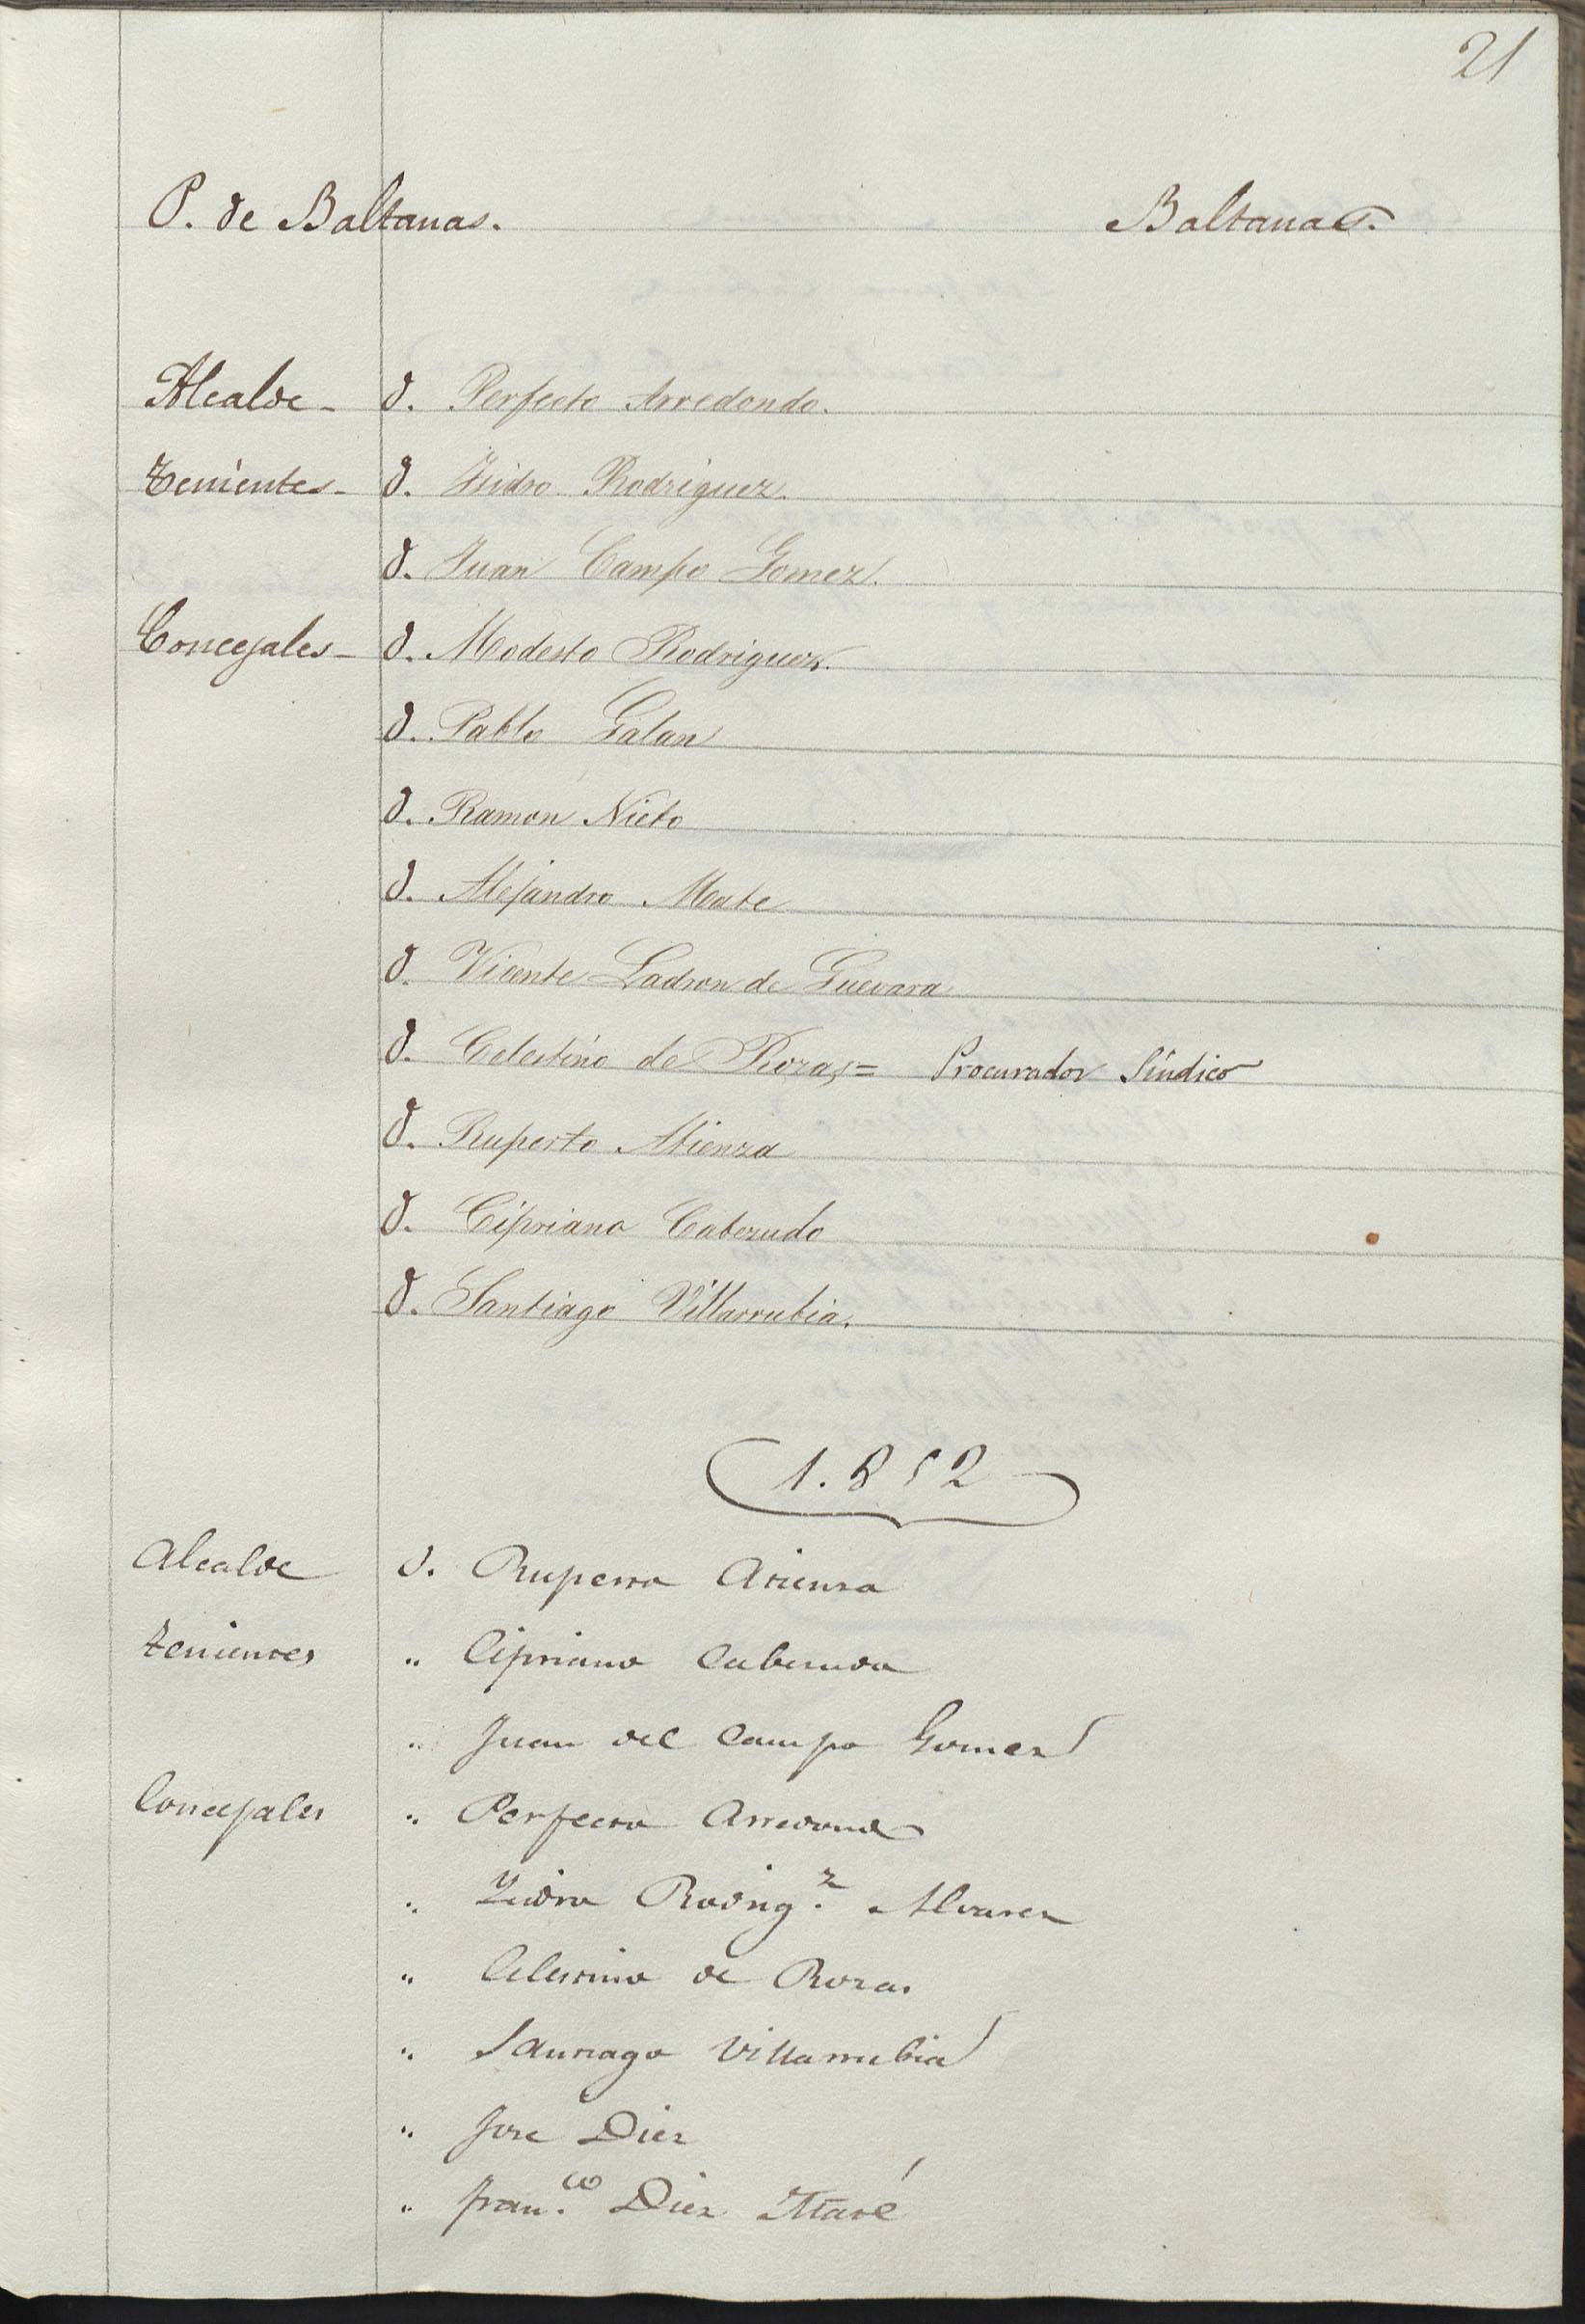 21
P. de Baltanas. Baltanas.
Alcalde - D. Perfecto Arredondo.
Tenientes - D. Isidro Rodriguez.
D. Juan Campo Gomez.
Concejales - D. Modesto Rodriguez.
D. Pablo Galan
D. Ramon Nieto
D. Alejandro Mate
D. Vicente Ladron de Guevara
D. Celestino de Rozas = Procurador Síndico
D. Ruperto Atienza
D. Cipriano Cabezudo
D. Santiago Villarrubia.
1.852
Alcalde D. Ruperto Atienza
Tenientes " Cipriano Cabezudo
" Juan del Campo Gomez
Concejales " Perfecto Arredondo
" Isidro Rodrig.z Alvarez
" Celestino de Rozas
" Santiago Villarrubia
" Jose Diez
" Fran.co Diez Maté